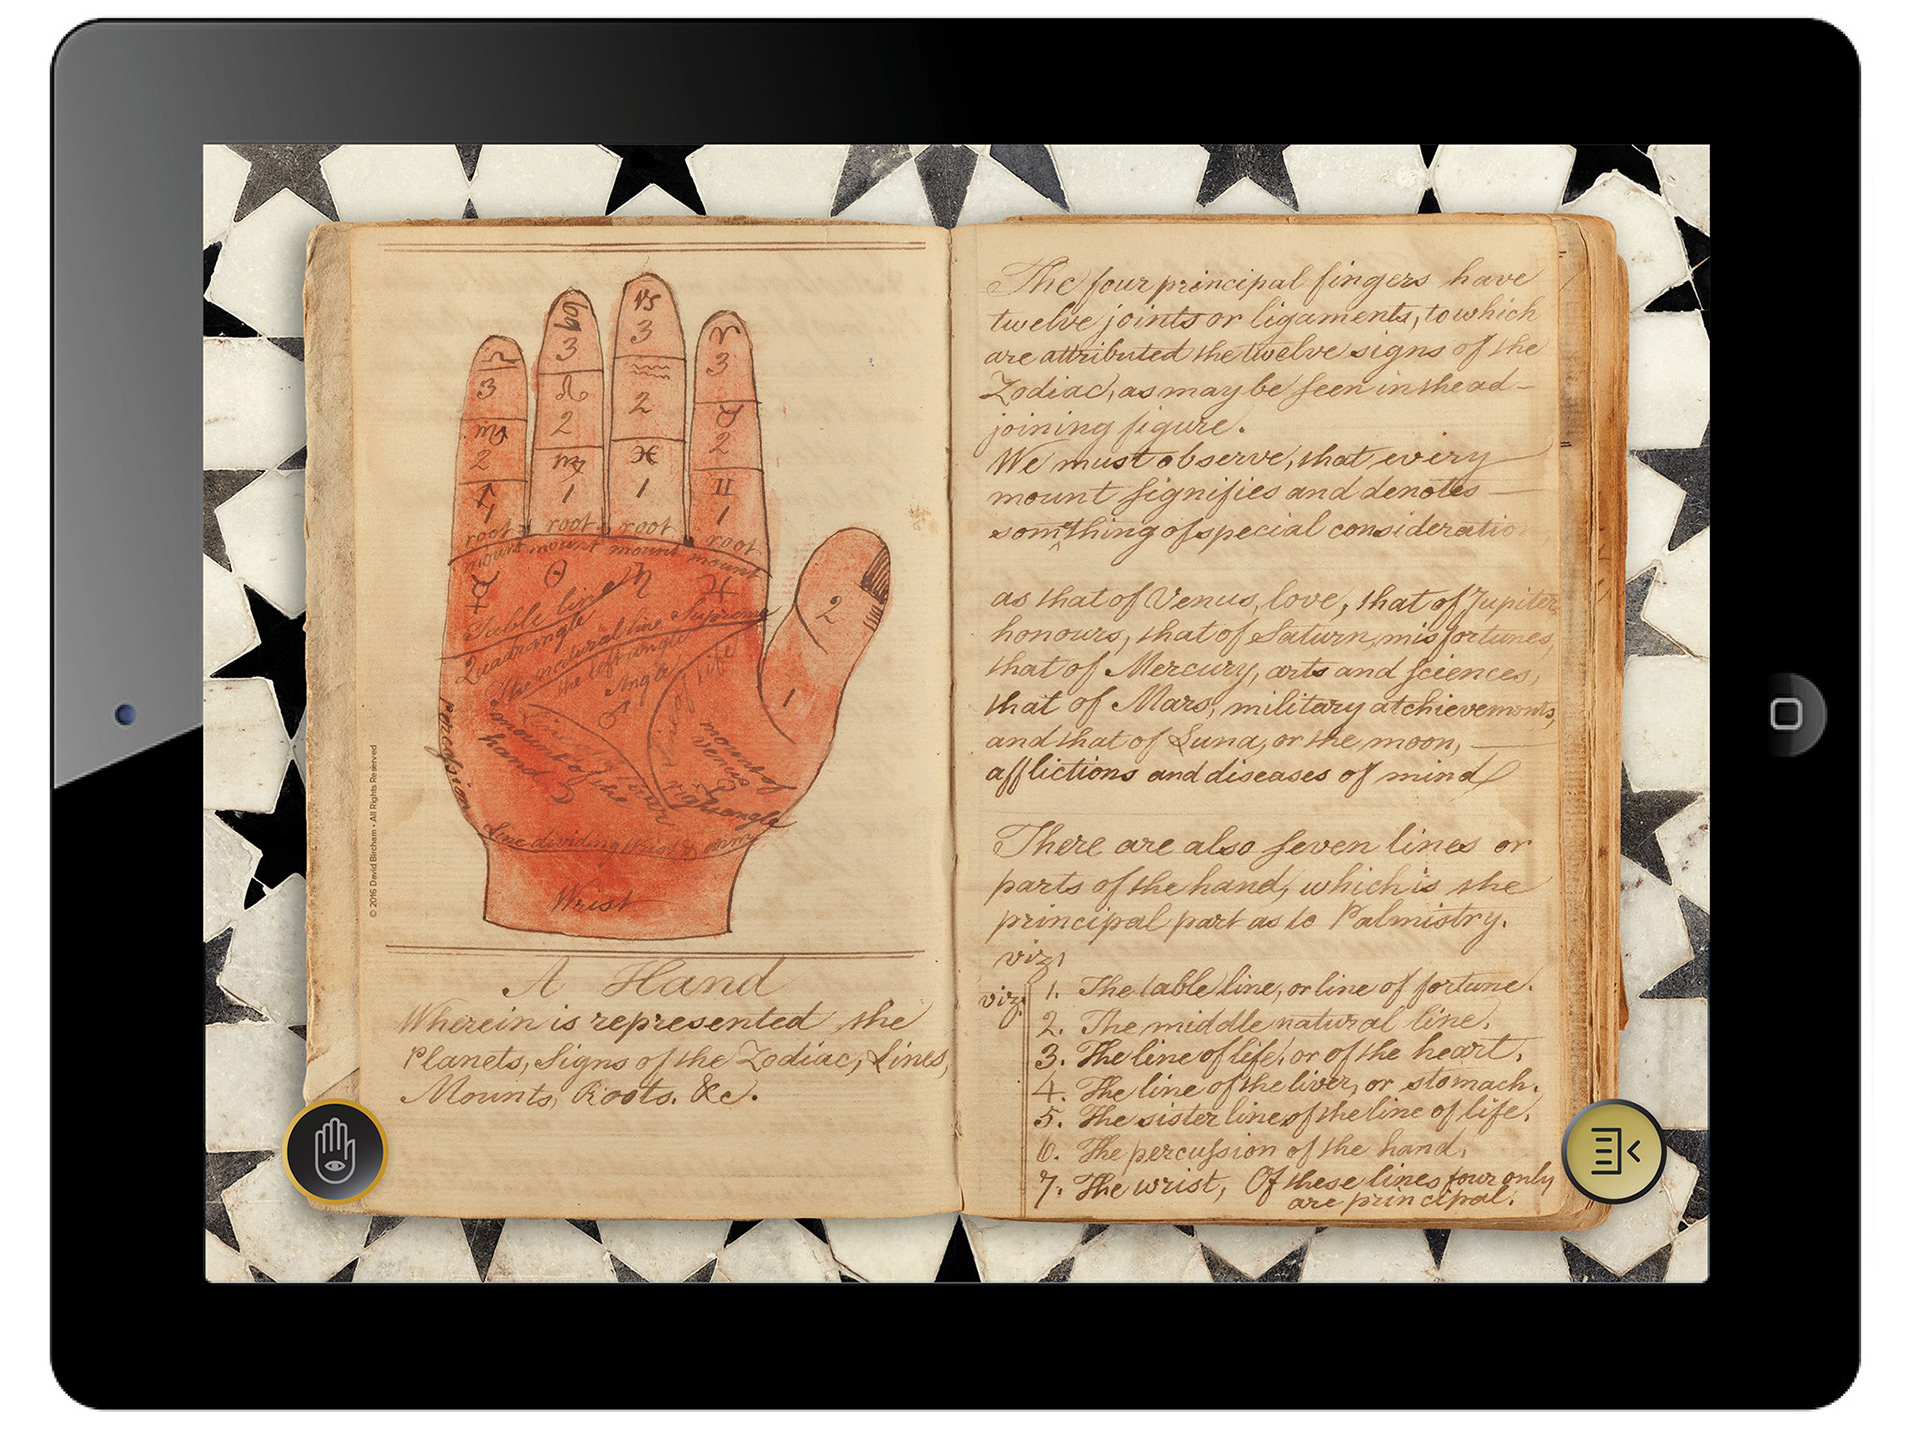 ♎
3
♏
2
♐
1
root
♋
3
♌
2
♍
1
root
♑
3
♒
2
♓
1
root
♈
3
♉
2
♊
1
root
mount mount mount mount
☿ ☉ ♄ ♃
Table line
Quadrangle
The natural line Supreme
the left angle
Angle
♂
line of life
2
1
mount of
Venus
♀
right angle
mount of the
hand
percuſsion
Line dividing wrist &
Wrist
© 2016 David Bircham • All Rights Reserved
A Hand
Wherein is represented the
Planets, Signs of the Zodiac, Lines,
Mounts, Roots. &c.
The four principal fingers have
twelve joints or ligaments, to which
are attributed the twelve signs of the
Zodiac, as may be seen in the ad-
joining figure.
We must observe, that every
mount signifies and denotes
something of special consideration
as that of Venus, love, that of Jupiter,
honours, that of Saturn, misfortunes,
that of Mercury, arts and sciences,
that of Mars, military atchievements,
and that of Luna, or the moon,
afflictions and diseases of mind
There are also seven lines or
parts of the hand, which is the
principal part as to Palmistry.
viz,
viz. 1. The table line, or line of fortune.
2. The middle natural line.
3. The line of life, or of the heart.
4. The line of the liver, or stomach.
5. The sister line of the line of life.
6. The percuſsion of the hand.
7. The wrist, Of these lines four only
are principal.